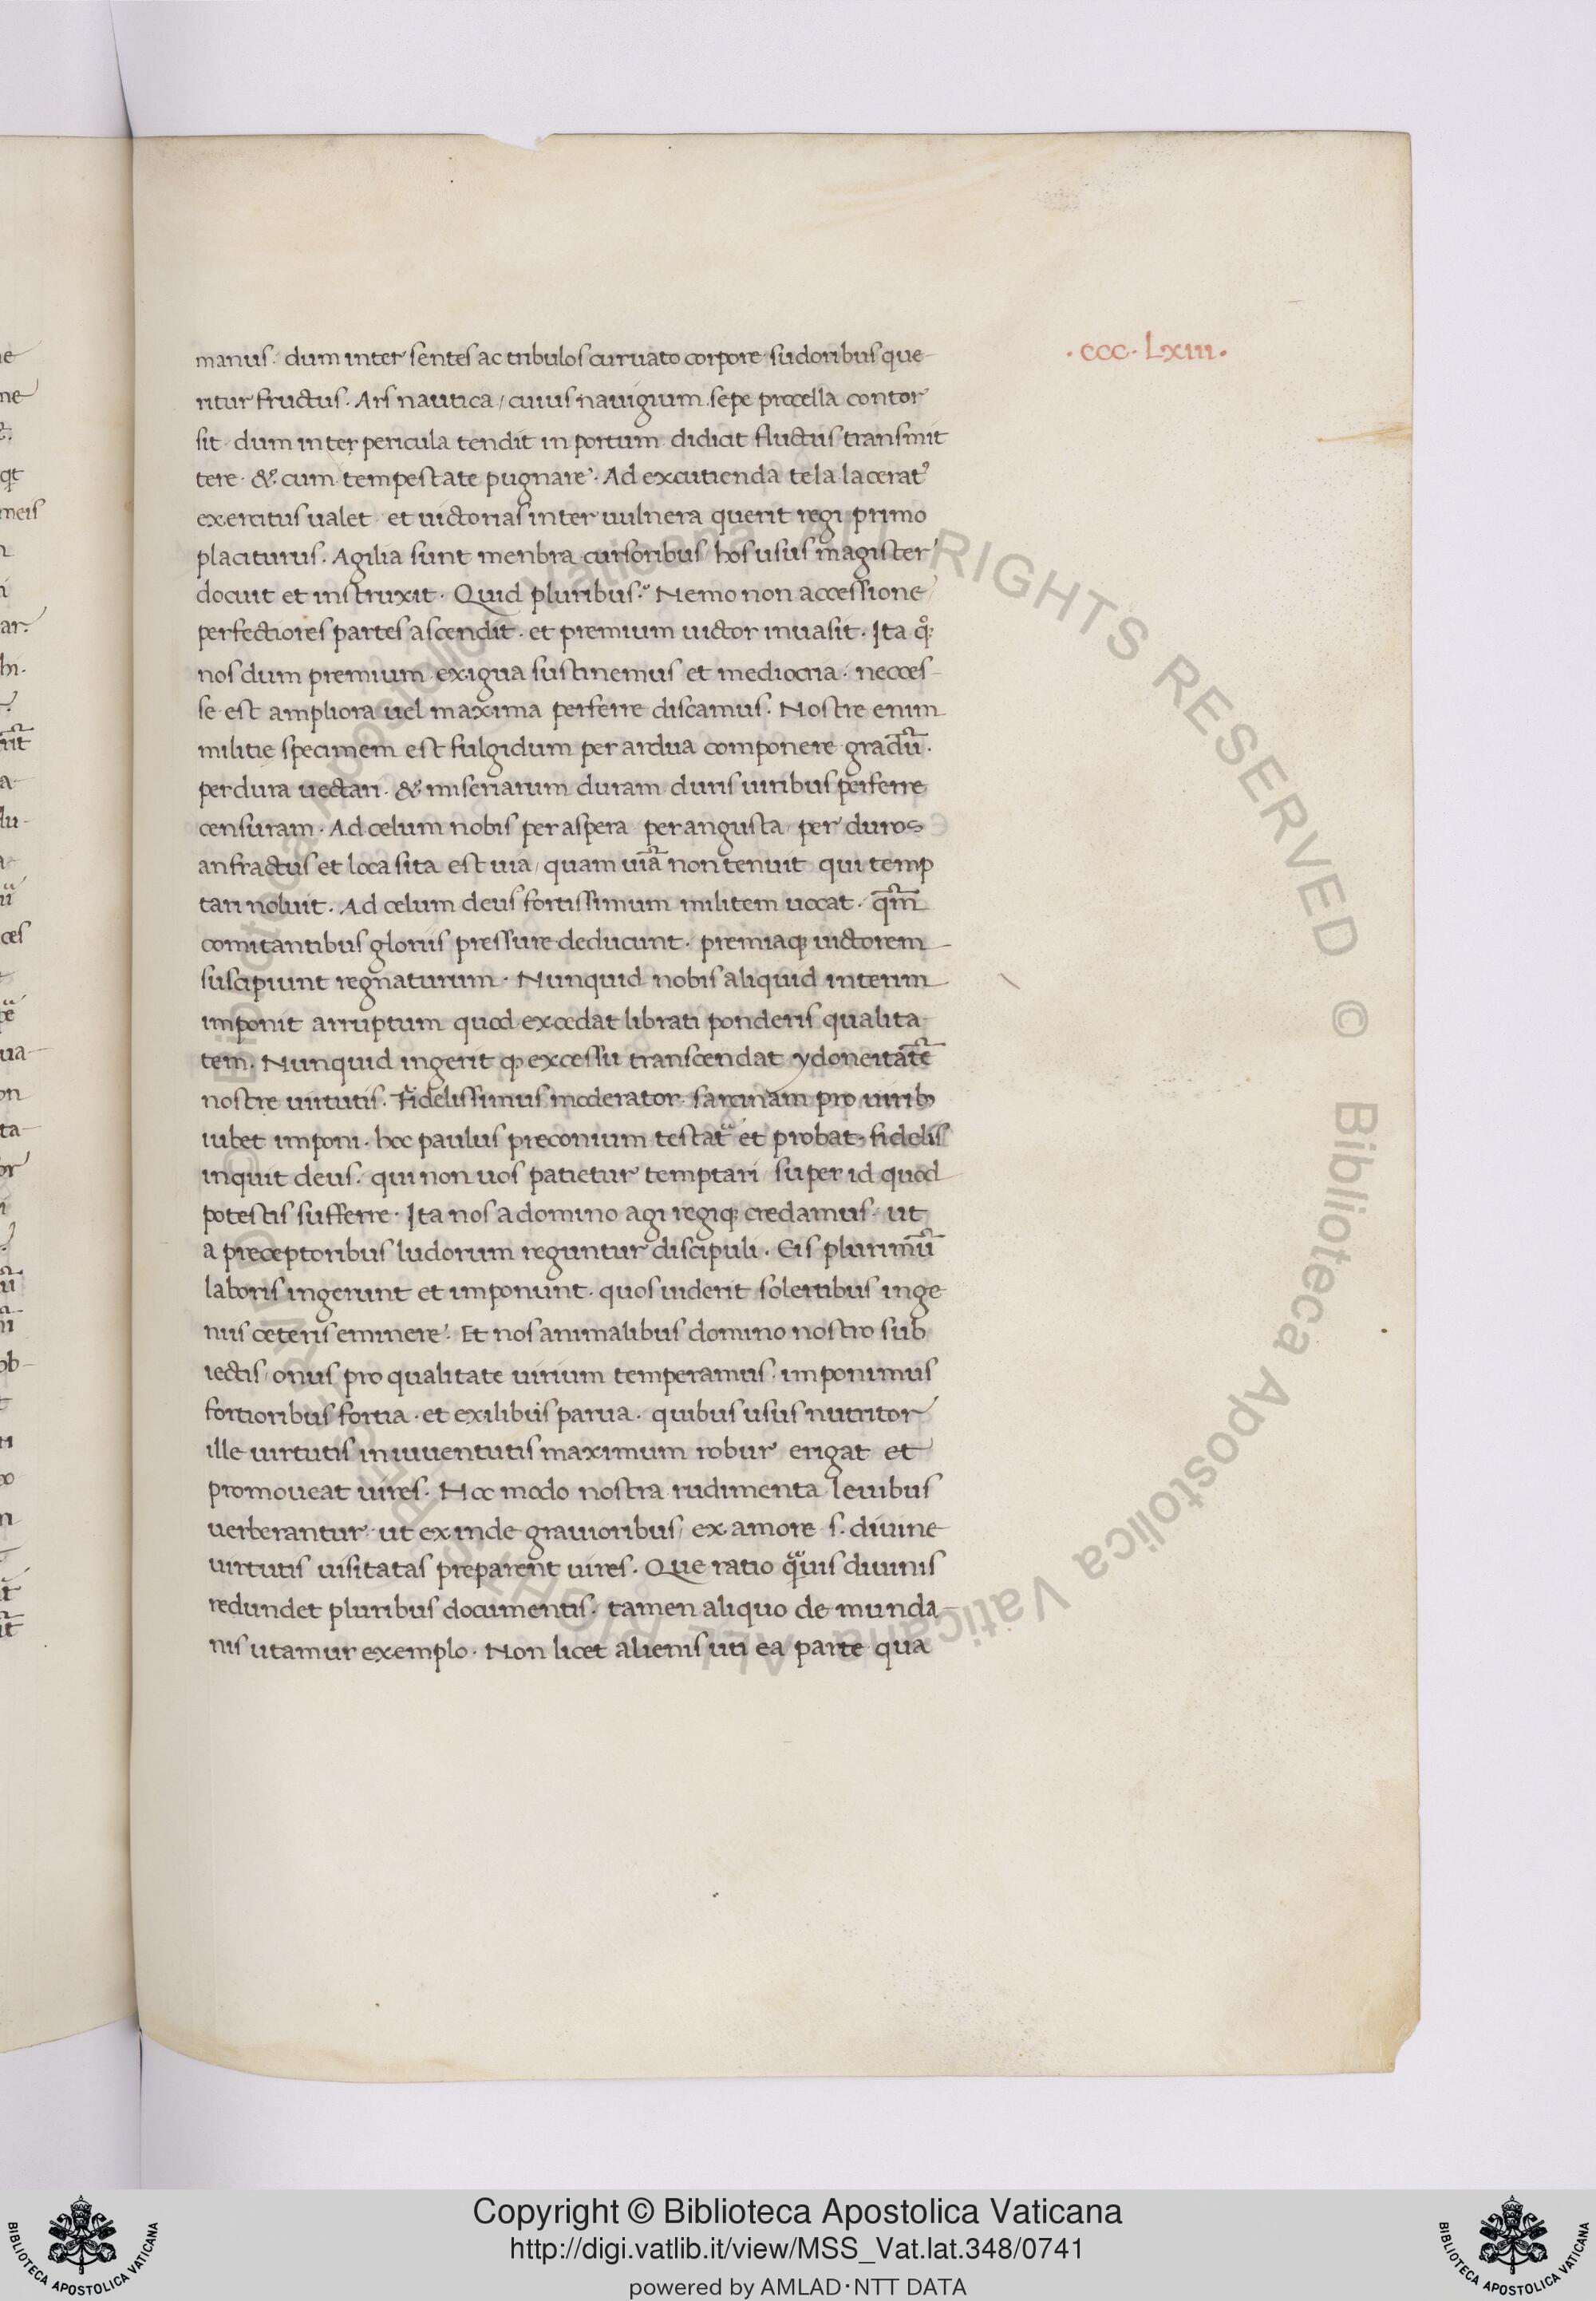 manus. dum inter sentes ac tribulos curuato corpore sudoribus que-
ritur fructus. Ars nautica / cuius nauigium sepe procella contor
sit dum inter pericula tendit in portum didicit fluctus transmit
tere. &. cum tempestate pugnare. Ad excutienda tela lacerat᾿
exercitus ualet. et uictorias inter uulnera querit regi primo
placiturus. Agilia sunt menbra cursoribus hos usus magister
docuit et instruxit. Quid pluribus. Nemo non accessione
perfectiores partes ascendit. et premium uictor inuasit. Ita qͦ:
nos dum premium exigua sustinemus et mediocria. necces-
se est ampliora uel maxima perferre discamus. Nostre enim
militie specimem est fulgidum per ardua componere gradū.
per dura uectari. & miseriarum duram duris uiribus perferre
censuram. Ad celum nobis per aspera per angusta per duros
anfractus et loca sita est uia / quam uiā non tenuit qui temp
tari noluit. Ad celum deus fortissimum militem uocat. qm̄
comitantibus gloriis pressure deducunt. premiaq; uictorem
suscipiunt regnaturum. Nunquid nobis aliquid interim
imponit arruptum quod excedat librati ponderis qualita-
tem. Nunquid ingerit qꝫ excessu transcendat ydoneitatē
nostre uirtutis. Fidelissimus moderator sarcinam pro uirib;
iubet imponi. hoc paulus preconium testat᾿ et probat. fidelis
inquit deus. qui non uos patietur temptari super id quod
potestis sufferre. Ita nos a domino agi regiq; credamus. ut
a preceptoribus ludorum reguntur discipuli. Eis plurimū
laboris ingerunt et imponunt. quos uiderit solertibus inge
niis ceteris eminere. Et nos animalibus domino nostro sub
iectis / onus pro qualitate uirium temperamus. imponimus
fortioribus fortia. et exilibus parua. quibus usus nutritor
ille uirtutis in iuuentutis maximum robur erigat et
promoueat uires. Hoc modo nostra rudimenta leuibus
uerberantur. ut exinde grauioribus / ex amore s. diuine
uirtutis uisitatas preparent uires. Que ratio qᵃuis diuinis
redundet pluribus documentis. tamen aliquo de munda-
nis utamur exemplo. Non licet alienis uti ea parte qua
.ccc.Lxiii.
RIGHTS RESERVED © Biblioteca Apostolica Vaticana
Copyright © Biblioteca Apostolica Vaticana
http://digi.vatlib.it/view/MSS_Vat.lat.348/0741
powered by AMLAD·NTT DATA
BIBLIOTECA APOSTOLICA VATICANA
BIBLIOTECA APOSTOLICA VATICANA